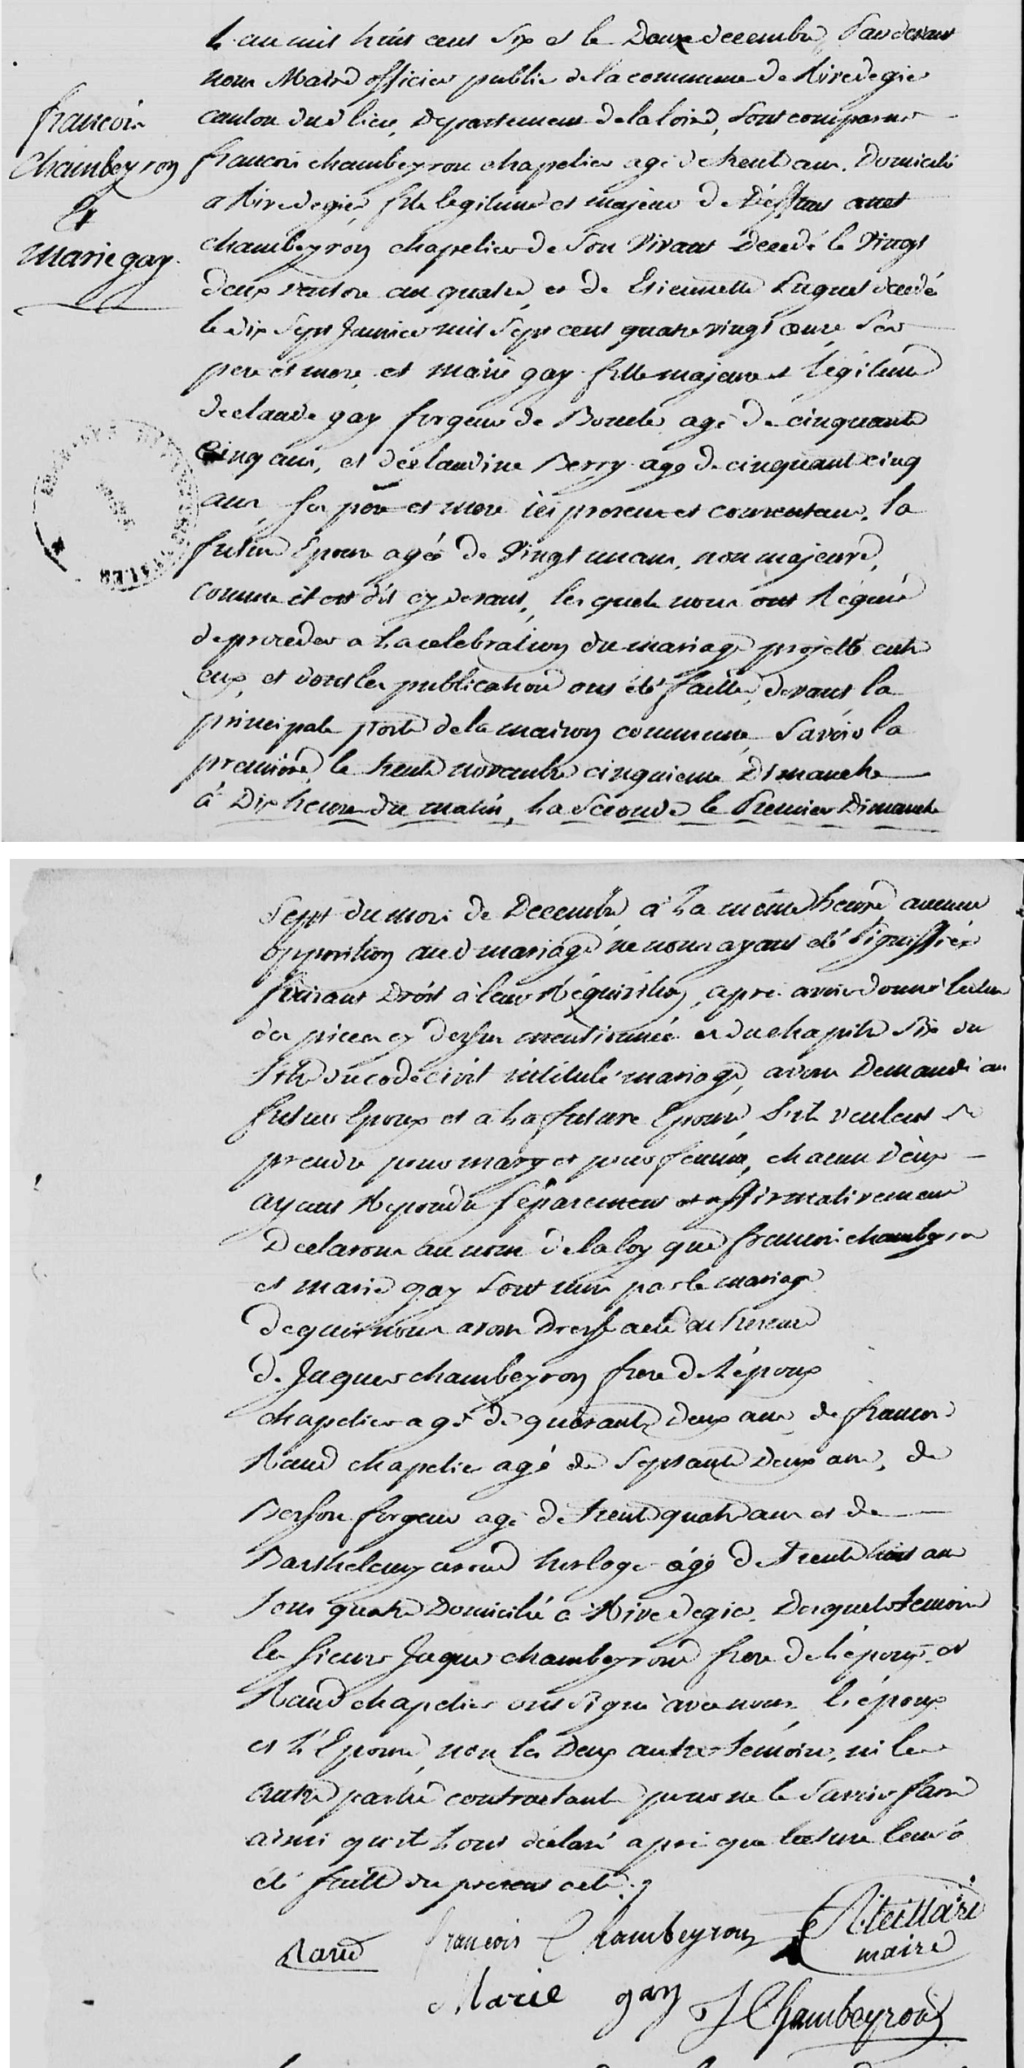 L'an mil huit cent six et le Douze decembre, Pardevant
nous Maire officier public de la commune de Rivedegier
canton dud. lieu, Departement de la Loire, Sont comparus
françois
Chambeyron
&
Marie gay
francois chambeyron chapelier agé de trent ans. Domicilié
a Rivedegier, fils legitime et majeur de Deffunt
chambeyron chapelier de Son Vivant Decedé le Vingt
deux ventose an quatre, et de Etiennette Luquet decedé
le dix Sept Janvier mil Sept cent quatre vingt onze Ses
pere et mere, et marie gay fille majeure et légitime
de claude gay forgeur de Boucle agé de cinquante
Cinq ans, et de claudine Berry agé de cinquante cinq
ans, ses pere et mere ici presens et consentans. la
future Epouse agée de Vingt un ans, non majeure,
comme il est dit cy devant, lesquels nous ont Réquis
de proceder a La celebration du mariage projetté entre
eux, et dont les publications ont été faittes, devant la
principale porte de la maison commune, Savoir la
premiere, le trente novembre cinquieme Dimanche
à Dix heures du matin, La Seconde le Premier Dimanche
Sept du mois de Decembre à La même heure, aucune
opposition aud. mariage ne nous ayant été signiffiée
faisant Droit à leur Réquisition, apres avoir donné lecture
des pieces cy dessus mentionnées et du chapitre Six du
titre du code civil intitulé mariage, avons Demandé au
futur Epoux et a La future Epouse S'ils veulent se
prendre pour mary et pour femme, chacun d'eux
ayant Repondu Séparement et affirmativement
Declarons au nom de la loy que francois chambeyron
et marie gay Sont unis par le mariage
de quoi nous avons Dressé acte en presence
de Jaques chambeyron frere de l'époux
chapelier agé de quarante Deux ans, de francois
Raud chapelier agé de Septante Deux ans, de
Berson forgeur agé de trente quatre ans et de
Barthelemy horloger agé de trente huit ans
tous quatre Domiciliés a Rivedegier. Desquels temoins
les Sieurs Jaques chambeyron frere de l'époux et
Raud chapelier ont Signé avec nous, l'époux
et L'Epouse, non les Deux autres temoins, ni les
autres parties contractantes pour ne le Savoir faire
ainsi qu'il L'ont déclaré apres que lecture leur a
été faitte du présent acte.
Raud francois Chambeyron Teillard
maire
Marie gay J Chambeyron